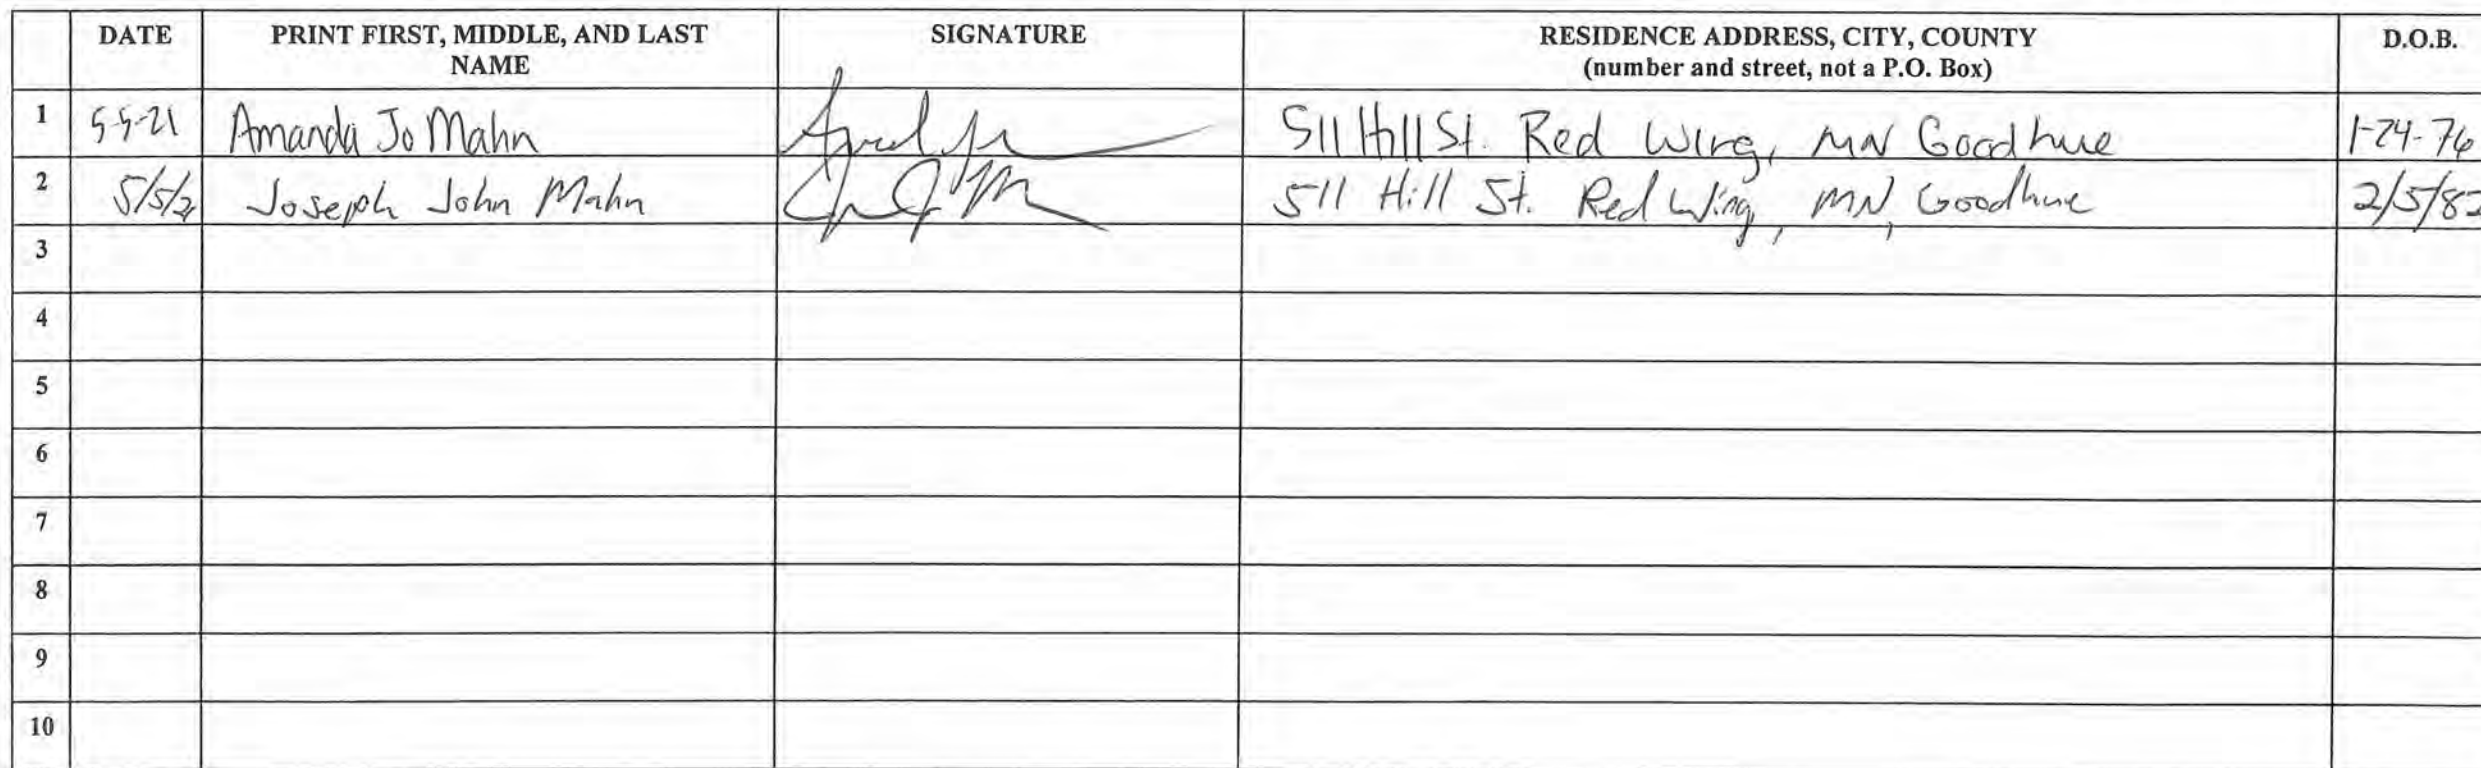 DATE PRINT FIRST, MIDDLE, AND LAST NAME SIGNATURE RESIDENCE ADDRESS, CITY, COUNTY (number and street, not a P.O. Box) D.O.B.
1 5-5-21 Amanda Jo Mahn 511 Hill St. Red Wing, MN Goodhue 1-24-76
2 5/5/21 Joseph John Mahn 511 Hill St. Red Wing, MN, Goodhue 2/5/82
3
4
5
6
7
8
9
10